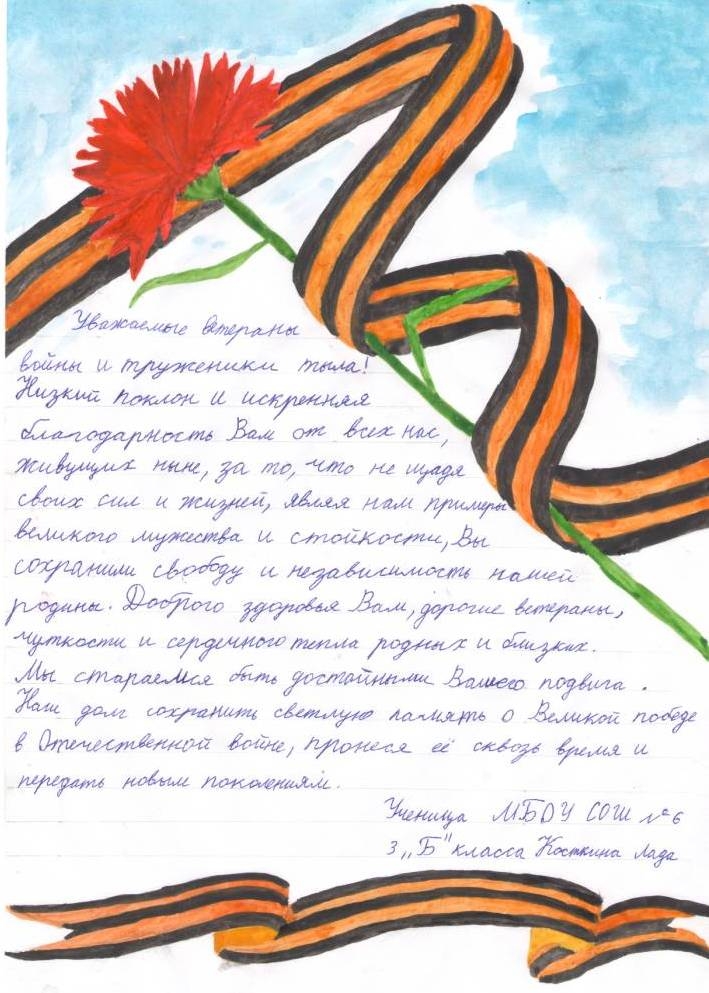 Уважаемые ветераны
войны и труженики тыла!
Низкий поклон и искренняя
благодарность Вам от всех нас,
живущих ныне, за то, что не щадя
своих сил и жизней, являя нам примеры
великого мужества и стойкости, Вы
сохранили свободу и независимость нашей
родины. Доброго здоровья Вам, дорогие ветераны,
чуткости и сердечного тепла родных и близких.
Мы стараемся быть достойными Вашего подвига.
Наш долг сохранить светлую память о Великой победе
в Отечественной войне, пронеся её сквозь время и
передать новым поколениям.
Ученица МБОУ СОШ №6
3 „Б" класса Косткина Лада